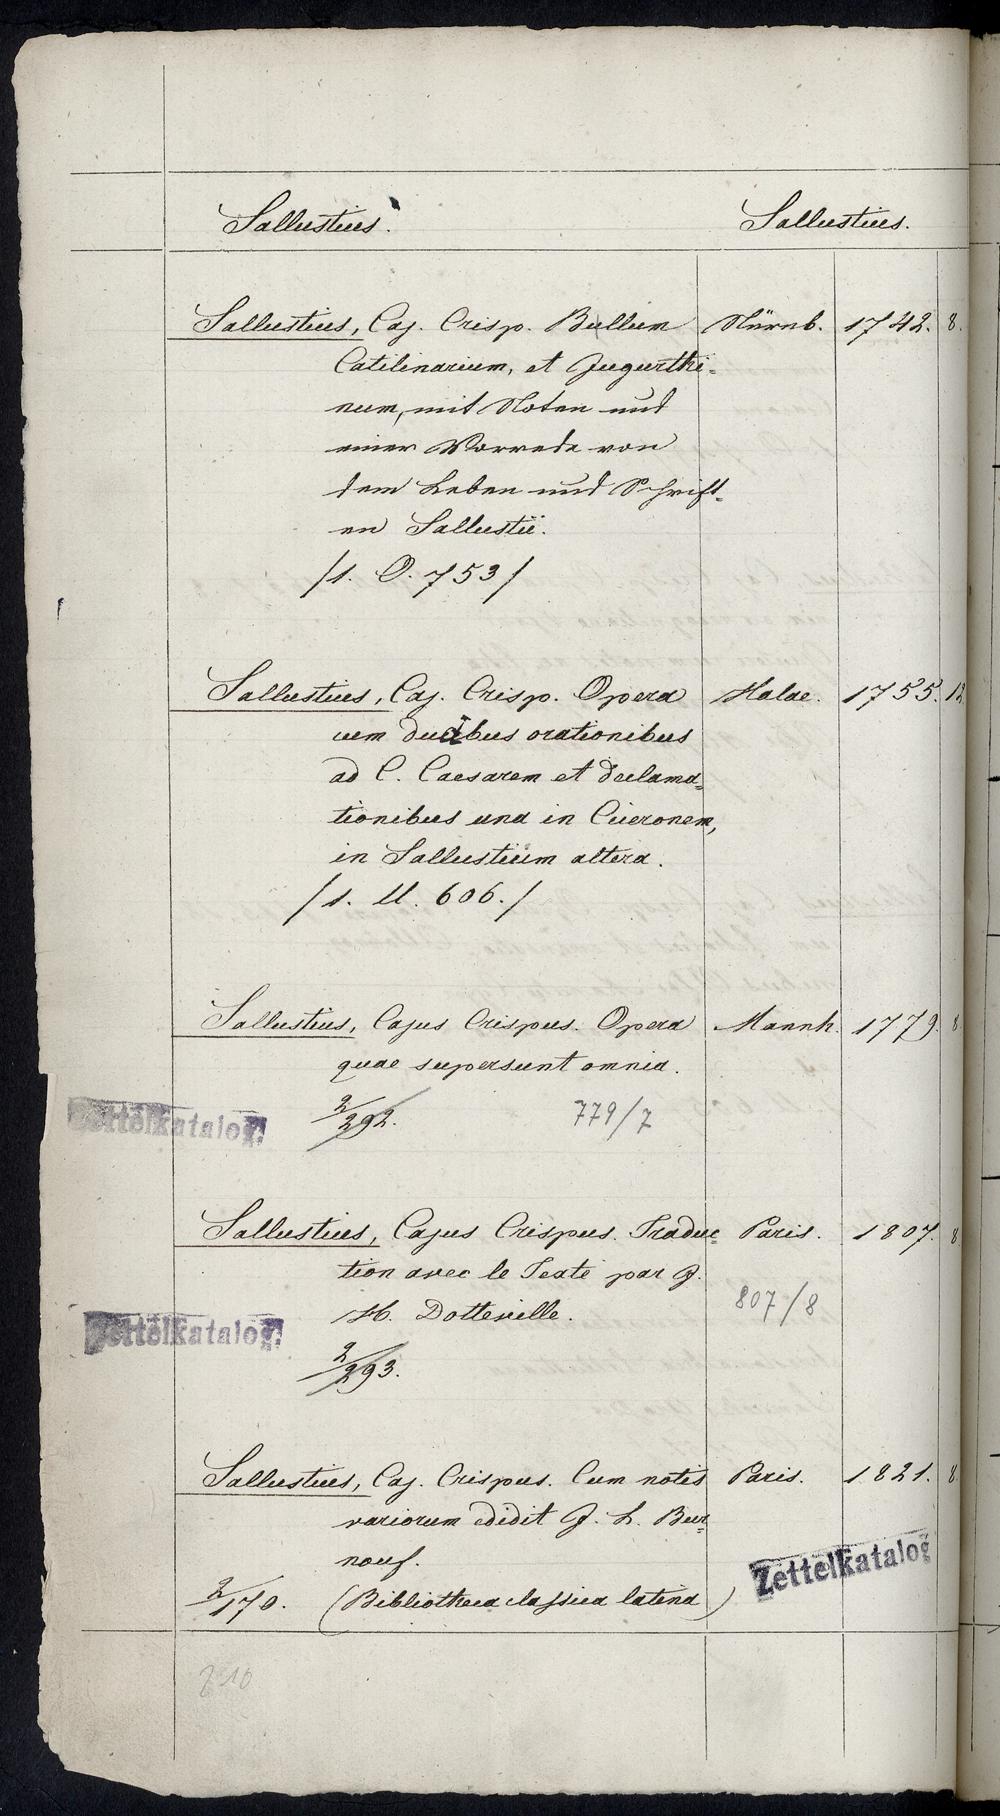 Sallustius. Sallustius.
Sallustius, Caj. Crisp. Bellum Nürnb. 1742. 8.
Catilinarium, et Jugurthi-
num, mit Noten und
einer Vorrede von
dem Leben und Schrift-
en Sallustii.
/s. O. 753/
Sallustius, Caj. Crisp. Opera Halae. 1755. 12
cum duabus orationibus
ad C. Caesarem et declama-
tionibus una in Ciceronem,
in Sallustium altera.
/s. U. 606./
Sallustius, Cajus Crispus. Opera Mannh. 1779. 8
quae supersunt omnia.
2/292. 779/7
Zettelkatalog
Sallustius, Cajus Crispus. Traduc- Paris. 1807. 8
tion avec le Texte par J.
H. Dotteville. 807/8
Zettelkatalog
2/293.
Sallustius, Caj. Crispus. Cum notis Paris. 1821. 8
variorum edidit J. L. Bur-
nouf.
Zettelkatalog
2/170. (Bibliotheca classica latina)
210